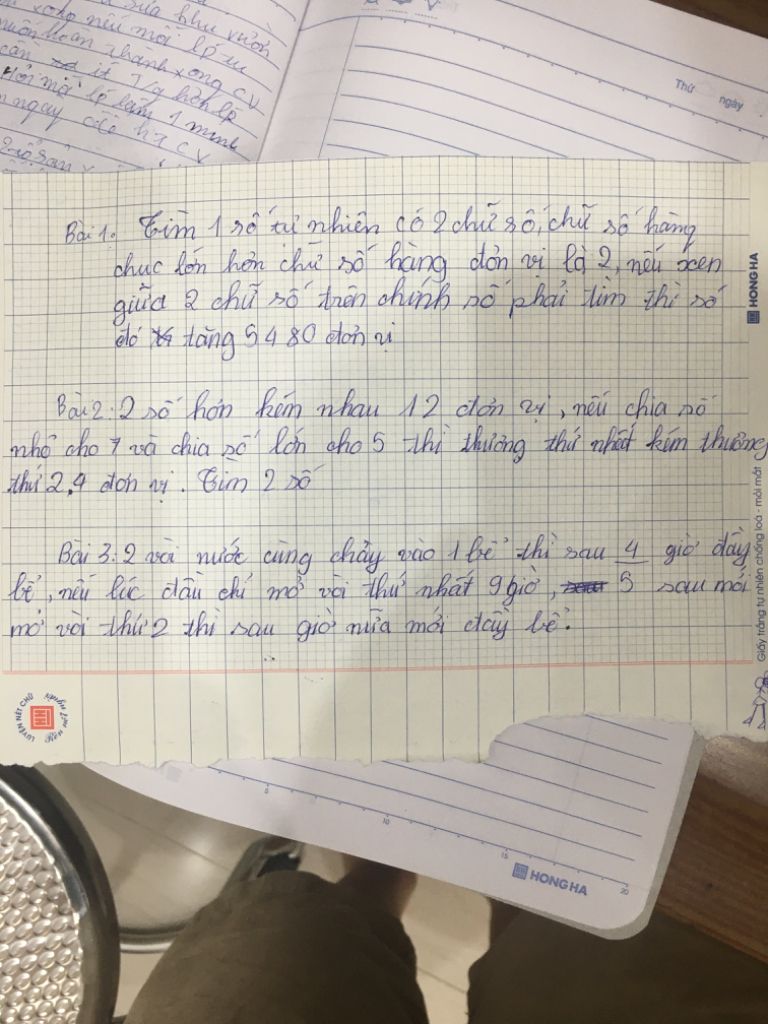 xong nếu mỗi lớp
ngay
Thứ ngày
Bài 1. Tìm 1 số tự nhiên có 2 chữ số, chữ số hàng
chục lớn hơn chữ số hàng đơn vị là 2, nếu xen
giữa 2 chữ số trên chính số phải tìm thì số
đó tăng 5480 đơn vị
Bài 2: 2 số hơn kém nhau 12 đơn vị, nếu chia số
nhỏ cho 7 và chia số lớn cho 5 thì thương thứ nhất kém thương
thứ 2, 4 đơn vị. Tìm 2 số
Bài 3: 2 vòi nước cùng chảy vào 1 bể thì sau 4 giờ đầy
bể, nếu lúc đầu chỉ mở vòi thứ nhất 9 giờ, 5 sau mới
mở vòi thứ 2 thì sau giờ nữa mới đầy bể.
HONG HA
Giấy trắng tự nhiên chống loá - mỏi mắt
LUYỆN NÉT CHỮ
5
10
15
20
HONG HA